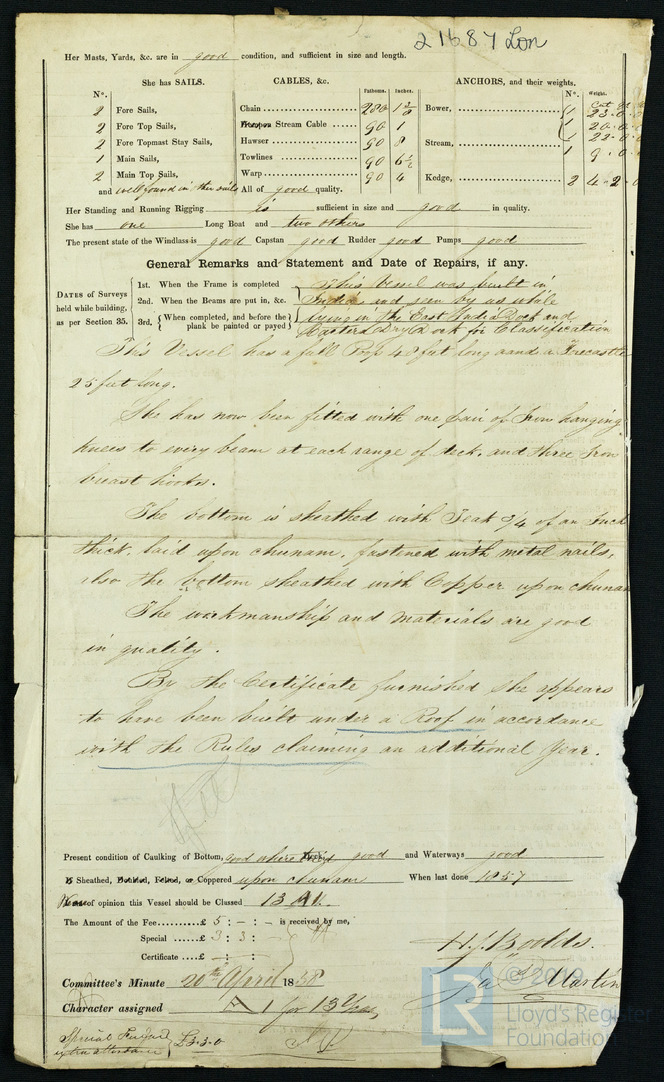 21687 Lon
Her Masts, Yards, &c. are in good condition, and sufficient in size and length.
She has SAILS.
CABLES, &c.
ANCHORS, and their weights.
N°.
Fathoms. Inches.
N°. Weight.
2 Fore Sails,
2 Fore Top Sails,
2 Fore Topmast Stay Sails,
1 Main Sails,
2 Main Top Sails,
and well found in other sails
Chain 200 1 5/8
Stream Cable 90 1
Hawser 90 8
Towlines 90 6 1/2
Warp 90 4
All of good quality.
Cwt
Bower, 1 23-0-
1 20-0-
1 22-0-
Stream, 1 9-0-
Kedge, 2 4-2-0
Her Standing and Running Rigging is sufficient in size and good in quality.
She has one Long Boat and two others
The present state of the Windlass is good Capstan good Rudder good Pumps good
General Remarks and Statement and Date of Repairs, if any.
DATES of Surveys held while building, as per Section 35.
1st. When the Frame is completed
2nd. When the Beams are put in, &c.
3rd. When completed, and before the plank be painted or payed
This Vessel was built in
India and seen by us while
lying in the East India Dock and
Dry Dock for Classification
This Vessel has a full Poop 48 feet long and a Forecastle
25 feet long.
She has now been fitted with one pair of Iron hanging
knees to every beam at each range of deck, and three Iron
breast hooks.
The bottom is sheathed with Teak 3/4 of an Inch
thick, laid upon chunam, fastened with metal nails,
also the bottom sheathed with Copper upon chunam
The workmanship and materials are good
in quality.
By the Certificate furnished she appears
to have been built under a Roof in accordance
with the Rules claiming an additional Year.
Present condition of Caulking of Bottom, good where good and Waterways good
Is Sheathed, Doubled, Felted, or Coppered upon chunam When last done 1857
of opinion this Vessel should be Classed 13 A1.
The Amount of the Fee......£ 5 : - : - is received by me,
Special ......£ 3 : 3 : -
Certificate ...£ - : - : -
H.J. Boolds.
Jas Martin
Committee's Minute 20th April 1858
Character assigned A 1 for 13 Years
Special Fee for
extra attendance } £3-3-0
© 2019
Lloyd's Register
Foundation
LR